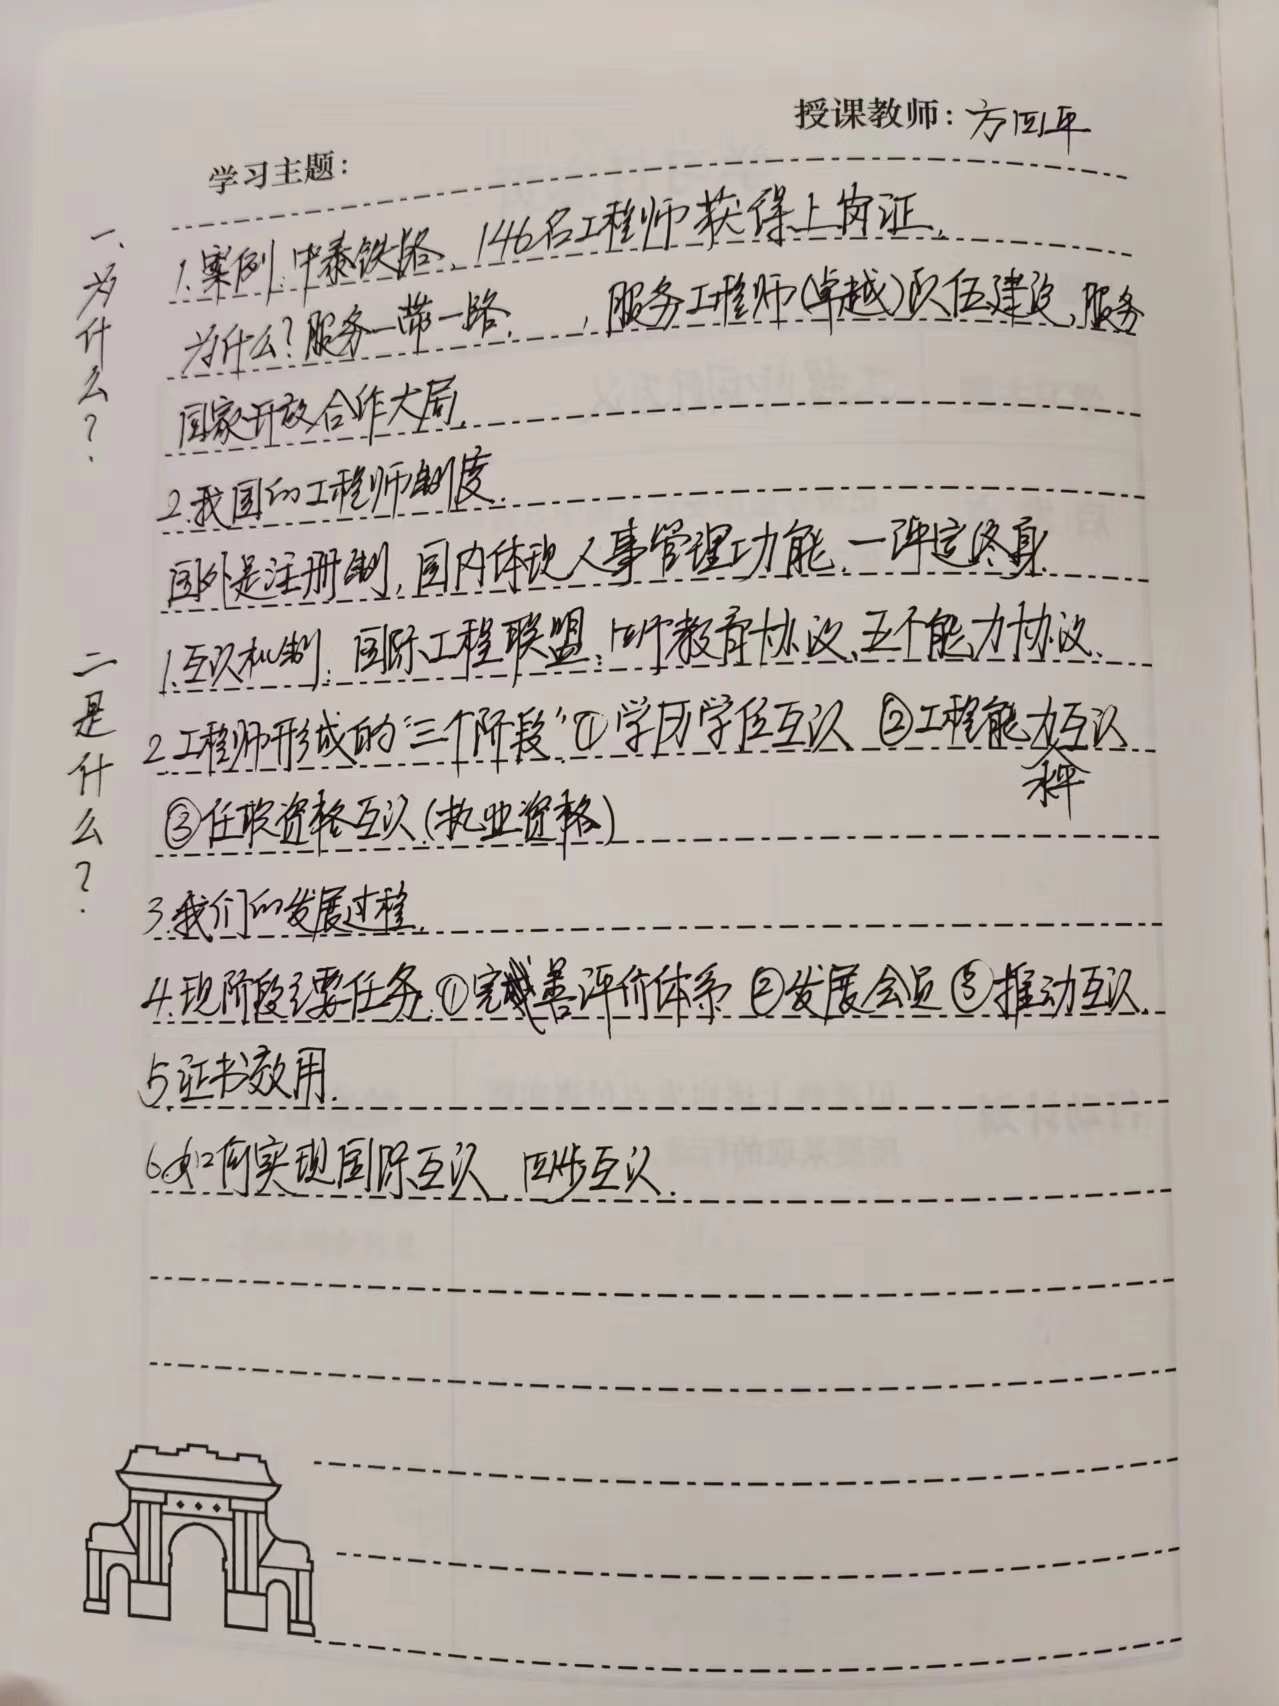 授课教师：方四平
学习主题：
一、为什么？
1.案例.中泰铁路、146名工程师获得上岗证、
为什么？服务一带一路、，服务工程师(卓越)队伍建设、服务
国家开放合作大局.
2.我国的工程师制度.
国外是注册制,国内体现人事管理功能、一评定终身.
二是什么？
1.互认机制.国际工程联盟、四个教育协议、五个能力协议.
2.工程师形成的"三个阶段"①学历学位互认 ②工程能力水平互认
③任职资格互认(执业资格)
3.我们的发展过程.
4.现阶段主要任务.①完善评价体系 ②发展会员 ③推动互认.
5.证书效用.
6.如何实现国际互认、四步互认.